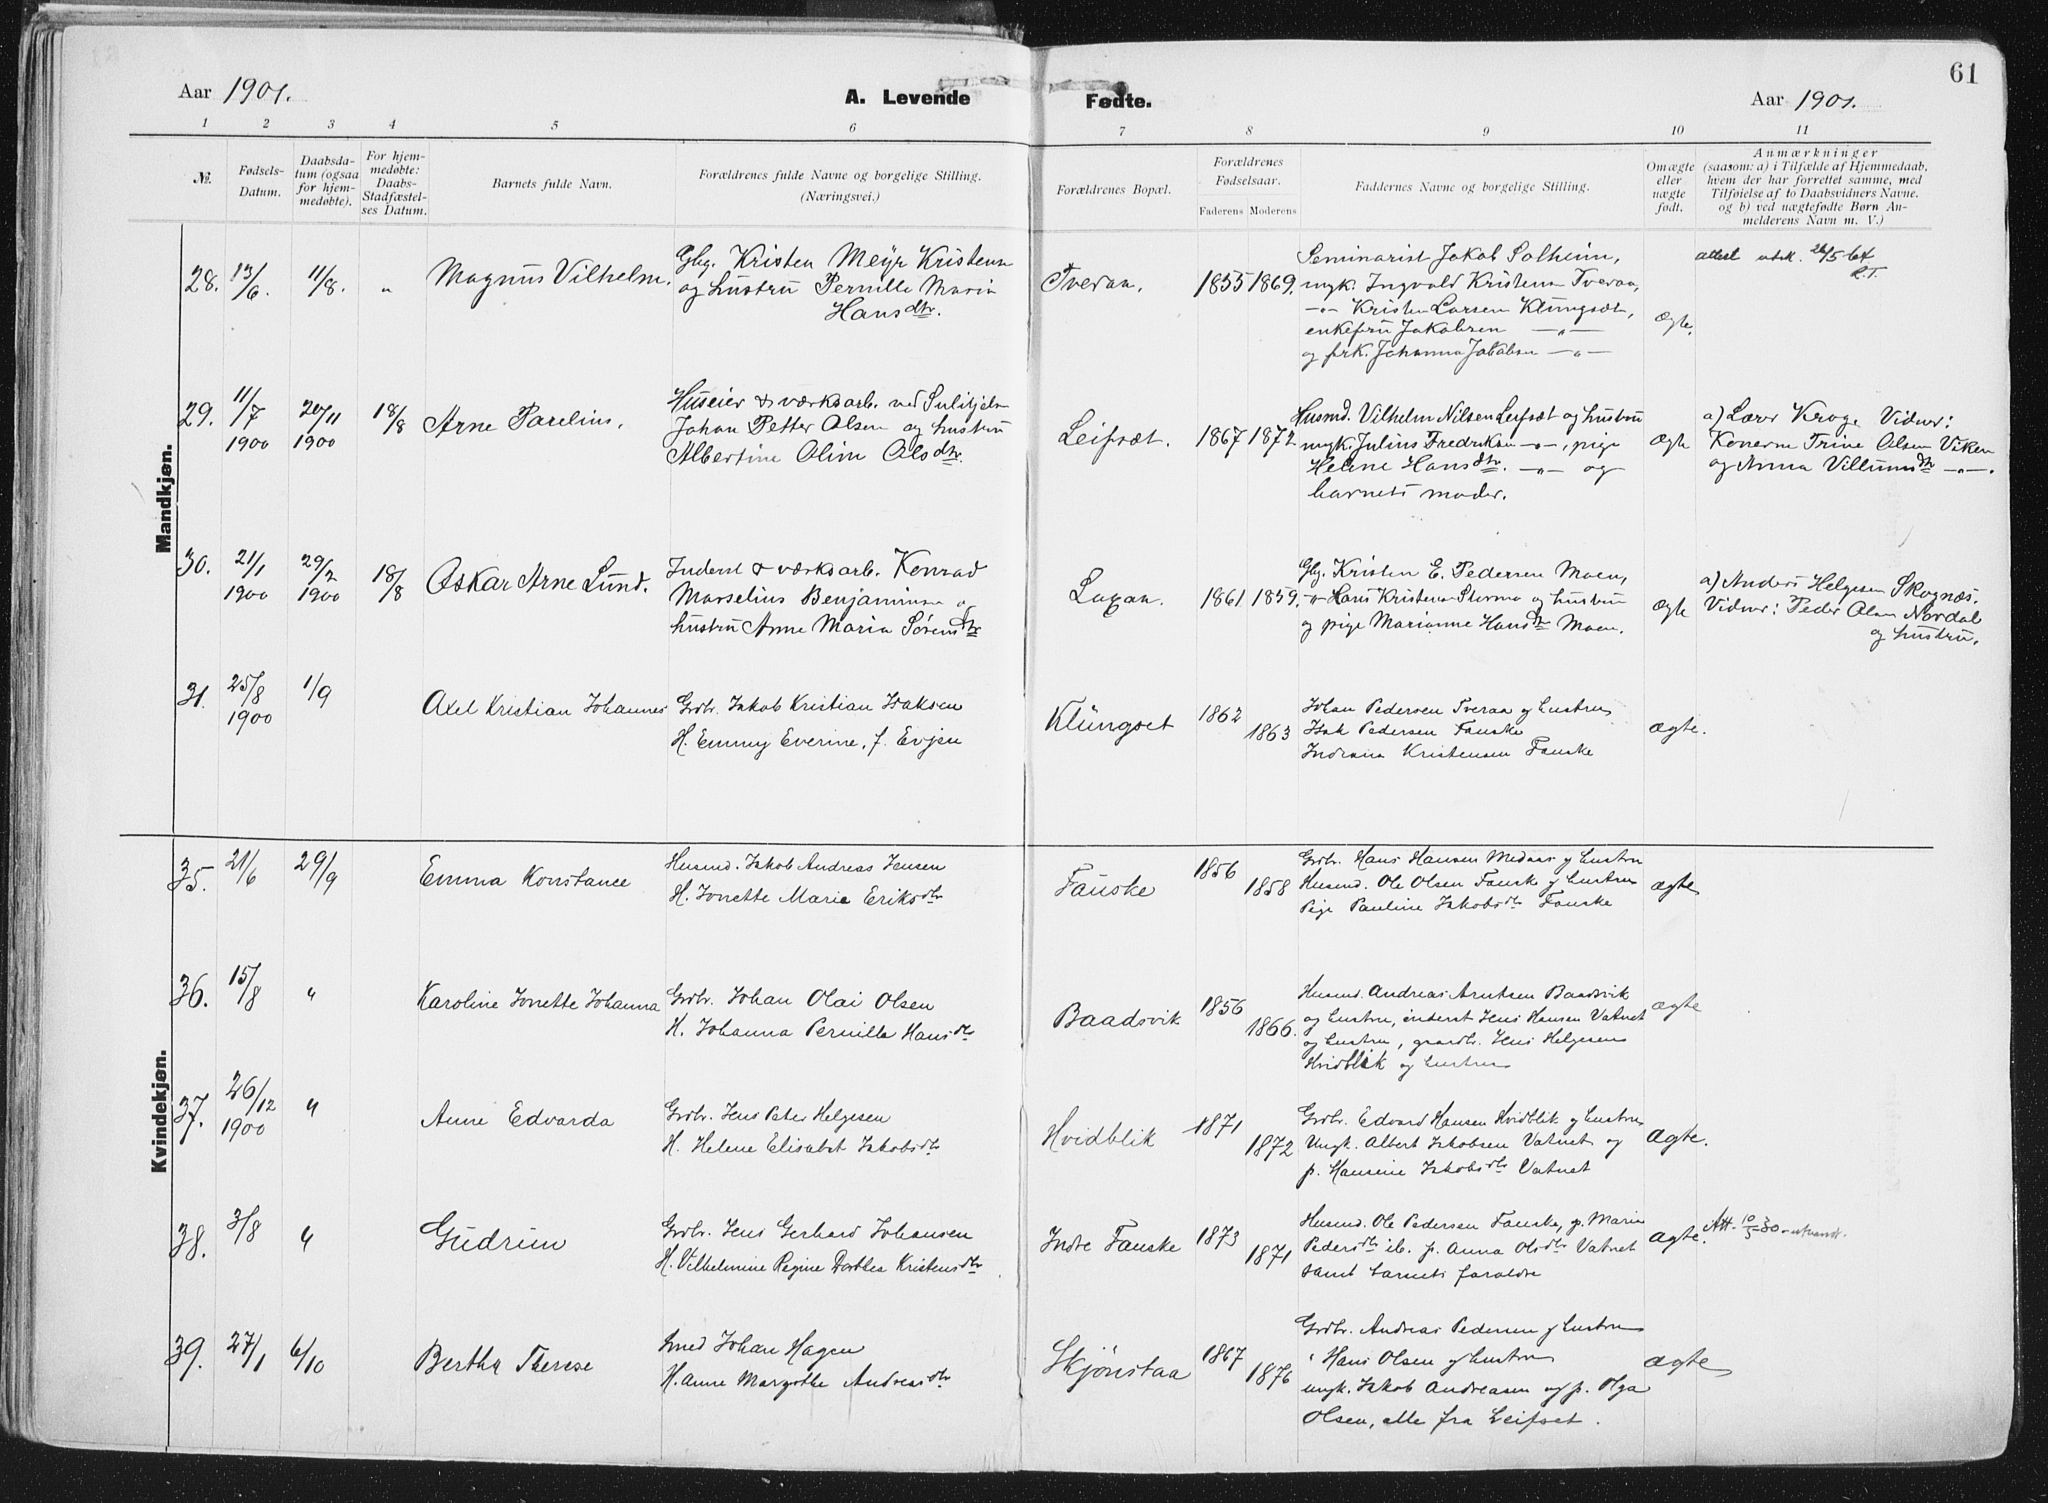 61
Aar 1901.
A. Levende Fødte.
Aar 1901.
1 2 3 4 5 6 7 8 9 10 11
№.
Fødsels-
Datum.
Daabsda-
tum (ogsaa
for hjem-
medøbte).
For hjem-
medøbte:
Daabs-
Stadfæstel-
ses Datum.
Barnets fulde Navn.
Forældrenes fulde Navne og borgelige Stilling.
(Næringsvei.)
Forældrenes Bopæl.
Forældrenes
Fødselsaar.
Faderens Moderens
Faddernes Navne og borgelige Stilling.
Omægte
eller
uægte
født.
Anmærkninger
(saasom: a) i Tilfælde af Hjemmedaab,
hvem der har forrettet samme, med
Tilføielse af to Daabsvidners Navne.
og b) ved uægtefødte Børn An-
melderens Navn m. V.)
Mandkjøn.
28. 13/6. 11/8. "
Magnus Vilhelm.
Gbg. Kristen Meyr Kristensen
og hustru Pernille Maria
Hansdtr.
Tveraa.
1855 1869.
Seminarist Jakob Solheim,
ungk. Ingvald Kristensen Tveraa,
-"- Kristen Larsen Klungsæt,
enkefru Jakobsen -"-
og frk. Johanna Jakobsen -"-
ægte.
attest utst. 26/5 64
R.T.
29. 11/7 1900 20/11 1900 18/8
Arne Parelius.
Huseier & værksarb. ved Sulitjelma
Johan Petter Olsen og hustru
Albertine Olim Olsdtr.
Leifsæt.
1867 1872
Husmd. Vilhelm Nilsen Leifsæt og hustru
ungk. Julius Fredriksen -"-, pige
Helene Hansdtr. -"- og
barnets moder.
ægte
a) Lærer Krogh. Vidner:
Konerne Trine Olsen Viken
og Anna Villumsdtr -"-.
30. 21/1 1900 29/2 1900 18/8
Oskar Arne Lund.
Inderst & værksarb. Konrad
Marselius Benjaminsen og
hustru Anne Maria Sørensdtr
Laxaa.
1861 1859.
Gbg. Kristen E. Pedersen Moen,
-"- Hans Kristensen Stormo og hustru
og pige Marianne Hansdtr Moen.
ægte
a) Anders Helgesen Skognæs.
Vidner: Peder Olsen Nordal
og hustru.
31. 25/8 1900 1/9
Axel Kristian Johannes
Grdbr. Jakob Kristian Isaksen
H. Emmy Everine, f. Evjen
Klungset
1862 1863
Johan Pedersen Tveraa og hustru
Isak Pedersen Fauske
Indiana Kristensen Fauske
ægte.
Kvindekjøn.
35. 21/6 29/9
Emma Konstance
Husmd. Jakob Andreas Jensen
H. Jonette Marie Eriksdtr
Fauske
1856 1858
Grdbr. Hans Hansen Medaas og hustru
Husmd. Ole Olsen Fauske og hustru
Pige Pauline Jakobsdtr Fauske
ægte
36. 15/8 "
Karoline Jonette Johanna
Grdbr. Johan Olai Olsen
H. Johanna Pernille Hansdtr
Baadsvik
1856 1866.
Husmd. Andreas Arntsen Baadsvik
og hustru, inderst Jens Hansen Vatnet
og hustru, gaardbr. Jens Helgesen
Hvidblik og hustru
ægte
37. 26/12 1900 "
Anne Edvarda
Grdbr. Jens Peter Helgesen
H. Helene Elisabet Jakobsdtr
Hvidblik
1871 1872
Grdbr. Edvard Hansen Hvidblik og hustru
Ungk. Albert Jakobsen Vatnet og
p. Hansine Jakobsdtr Vatnet
ægte.
38. 3/8 "
Gudrun
Grdbr. Jens Gerhard Johansen
H. Vilhelmine Regine Dorthea Kristensdtr
Indre Fauske
1873 1871
Husmd. Ole Pedersen Fauske, p. Marie
Pedersdtr ib. p. Anna Olsdtr Vatnet
samt barnets foraldre
ægte.
Att. 10/5-30 utsendt.
39. 27/1 6/10
Bertha Therese
Smed Johan Hagen
H. Anne Margrethe Andreasdtr
Skjønstaa
1867 1876
Grdbr. Andreas Pedersen og hustru
" Hans Olsen og hustru
ungk. Jakob Andreasen og p. Olga
Olsen, alle fra Leifset.
ægte